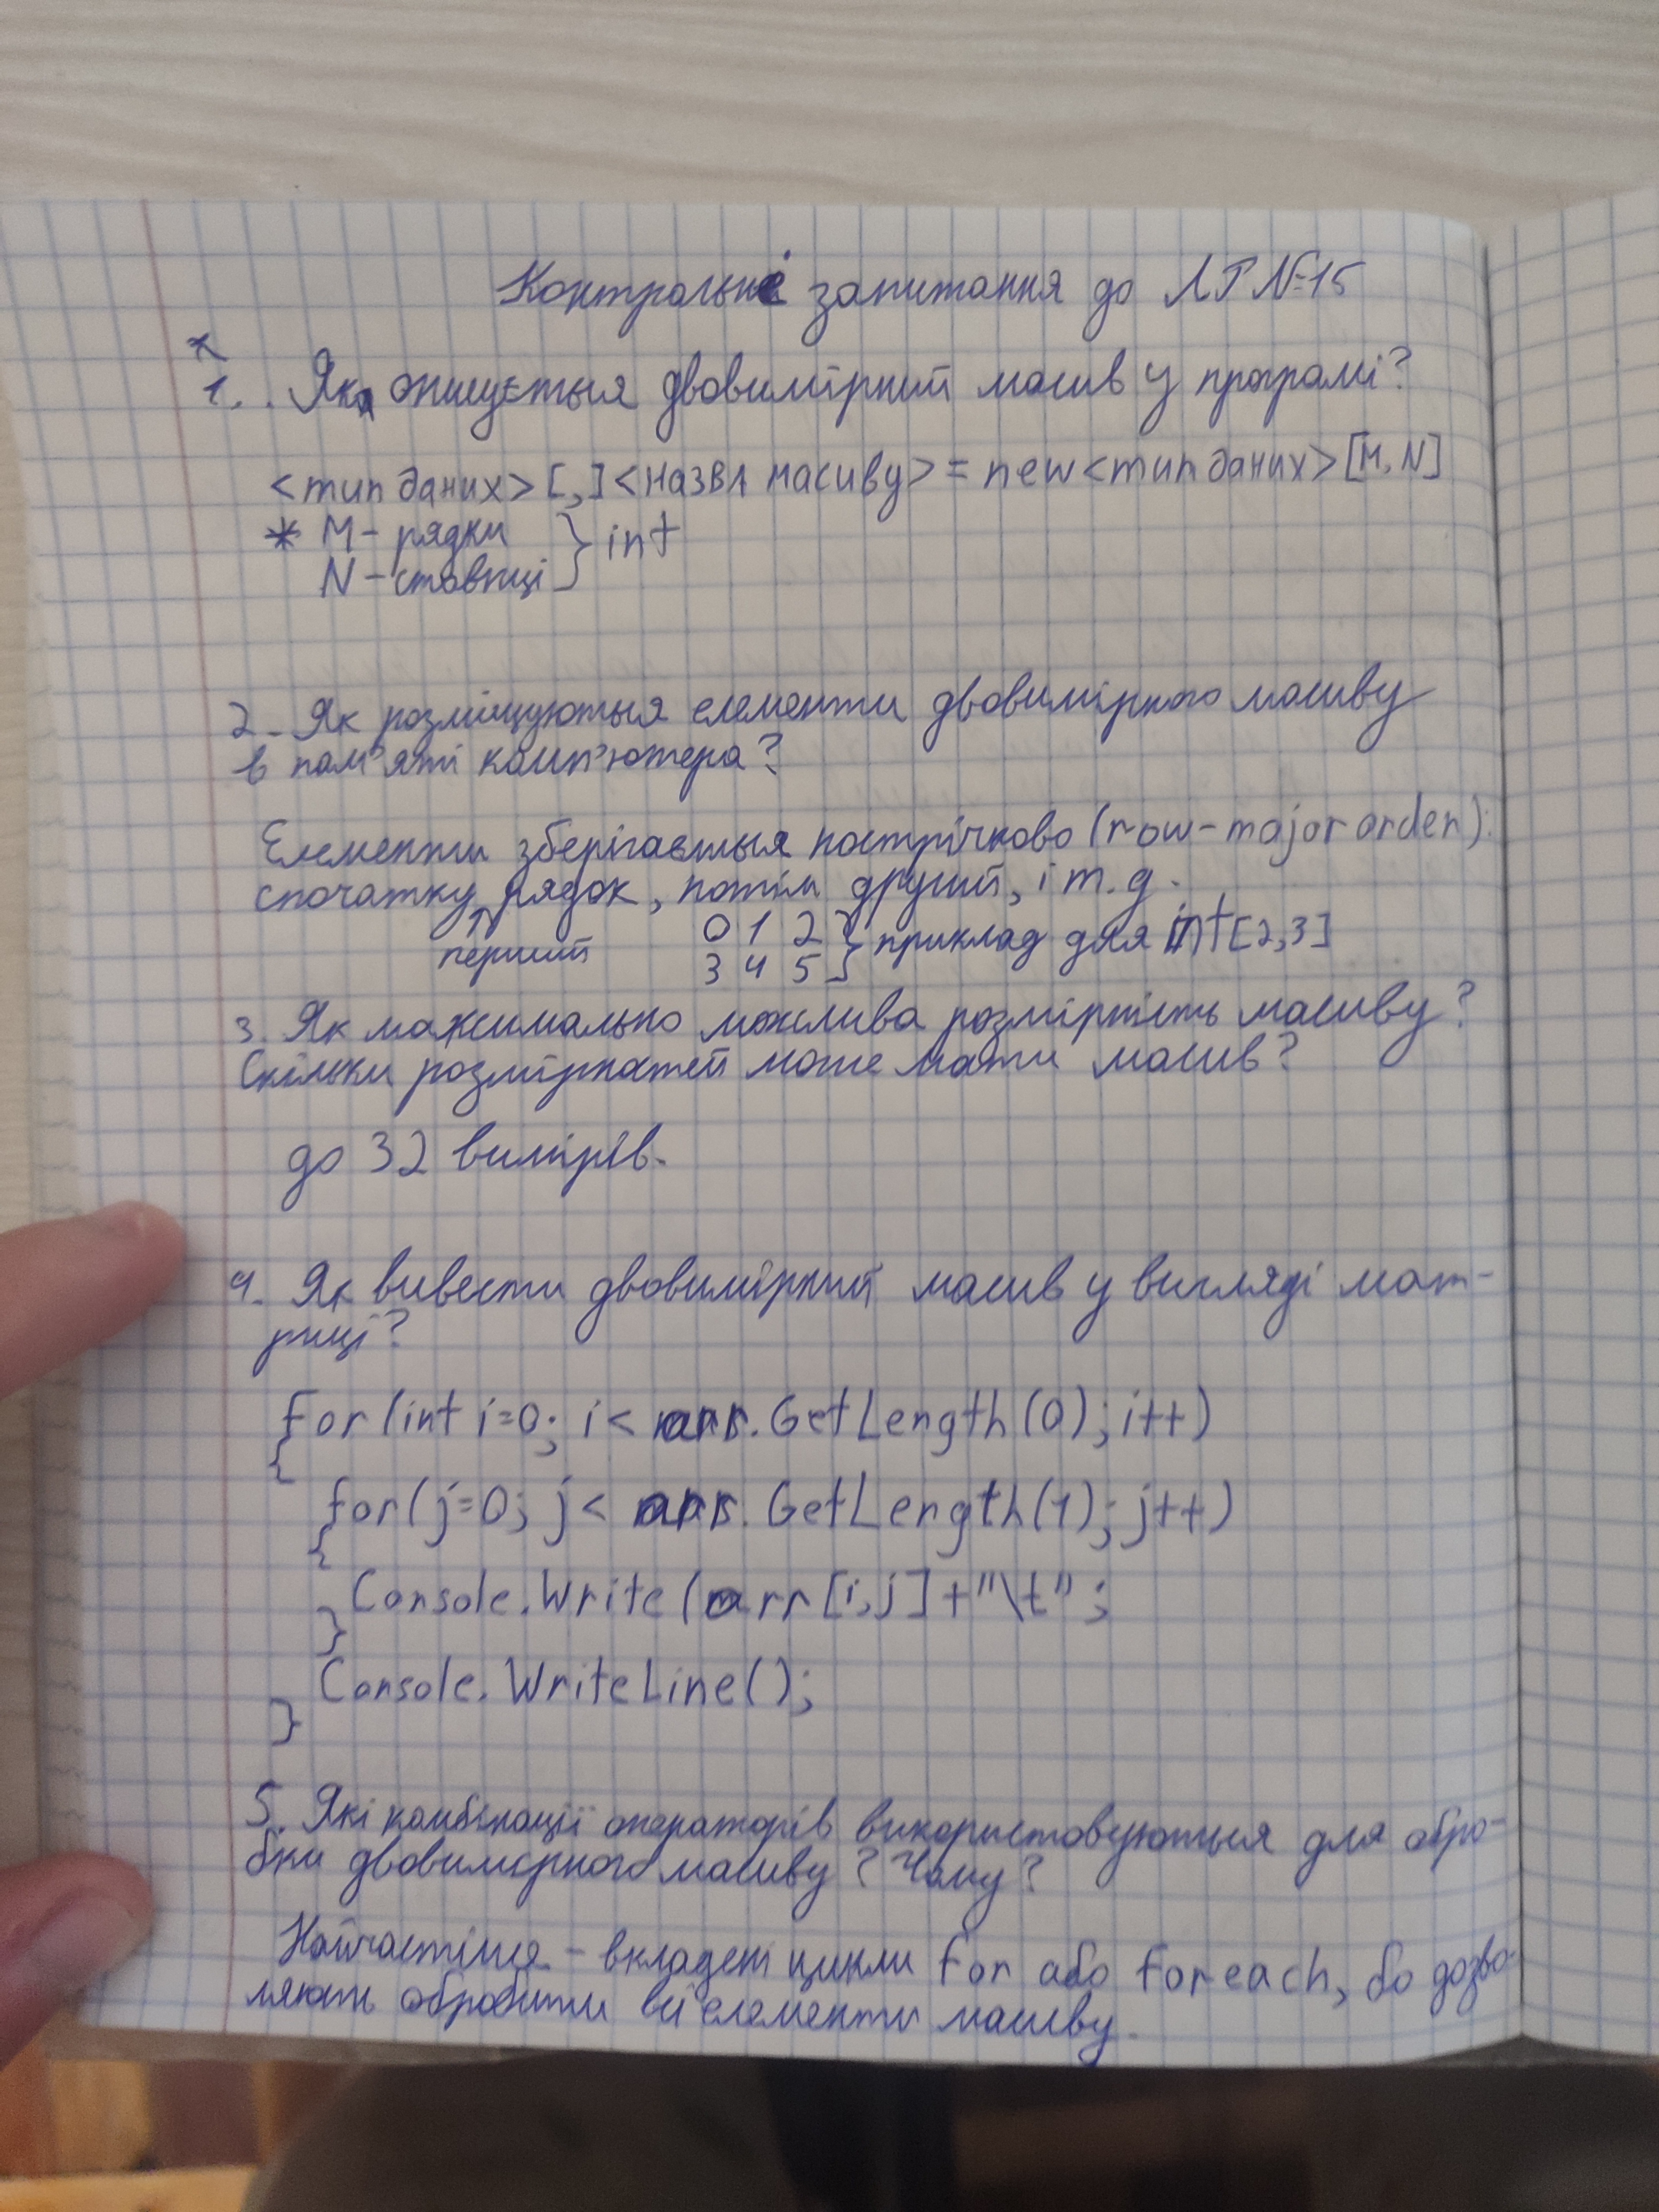 Контрольні запитання до ЛР №15
*
1. Як описується двовимірний масив у програмі?
<тип даних>[,]<назва масиву> = new<тип даних>[M, N]
* M - рядки } int
N - стовпці
2. Як розміщуються елементи двовимірного масиву
в пам'яті комп'ютера?
Елементи зберігається построчково (row-major order):
спочатку рядок, потім другий, і т.д.
↑ перший
0 1 2 } приклад для int[2,3]
3 4 5
3. Як максимально можлива розмірність масиву?
Скільки розмірностей може мати масив?
до 32 вимірів.
4. Як вивести двовимірний масив у вигляді мат-
риці?
for(int i=0; i< arr.GetLength(0); i++)
{
for(j=0; j< arr.GetLength(1); j++)
{
Console.Write(arr[i,j]+"\t";
}
Console.WriteLine();
}
5. Які комбінації операторів використовуються для обро-
бки двовимірного масиву? Чому?
Найчастіше - вкладені цикли for або foreach, бо дозво-
ляють обробити всі елементи масиву.